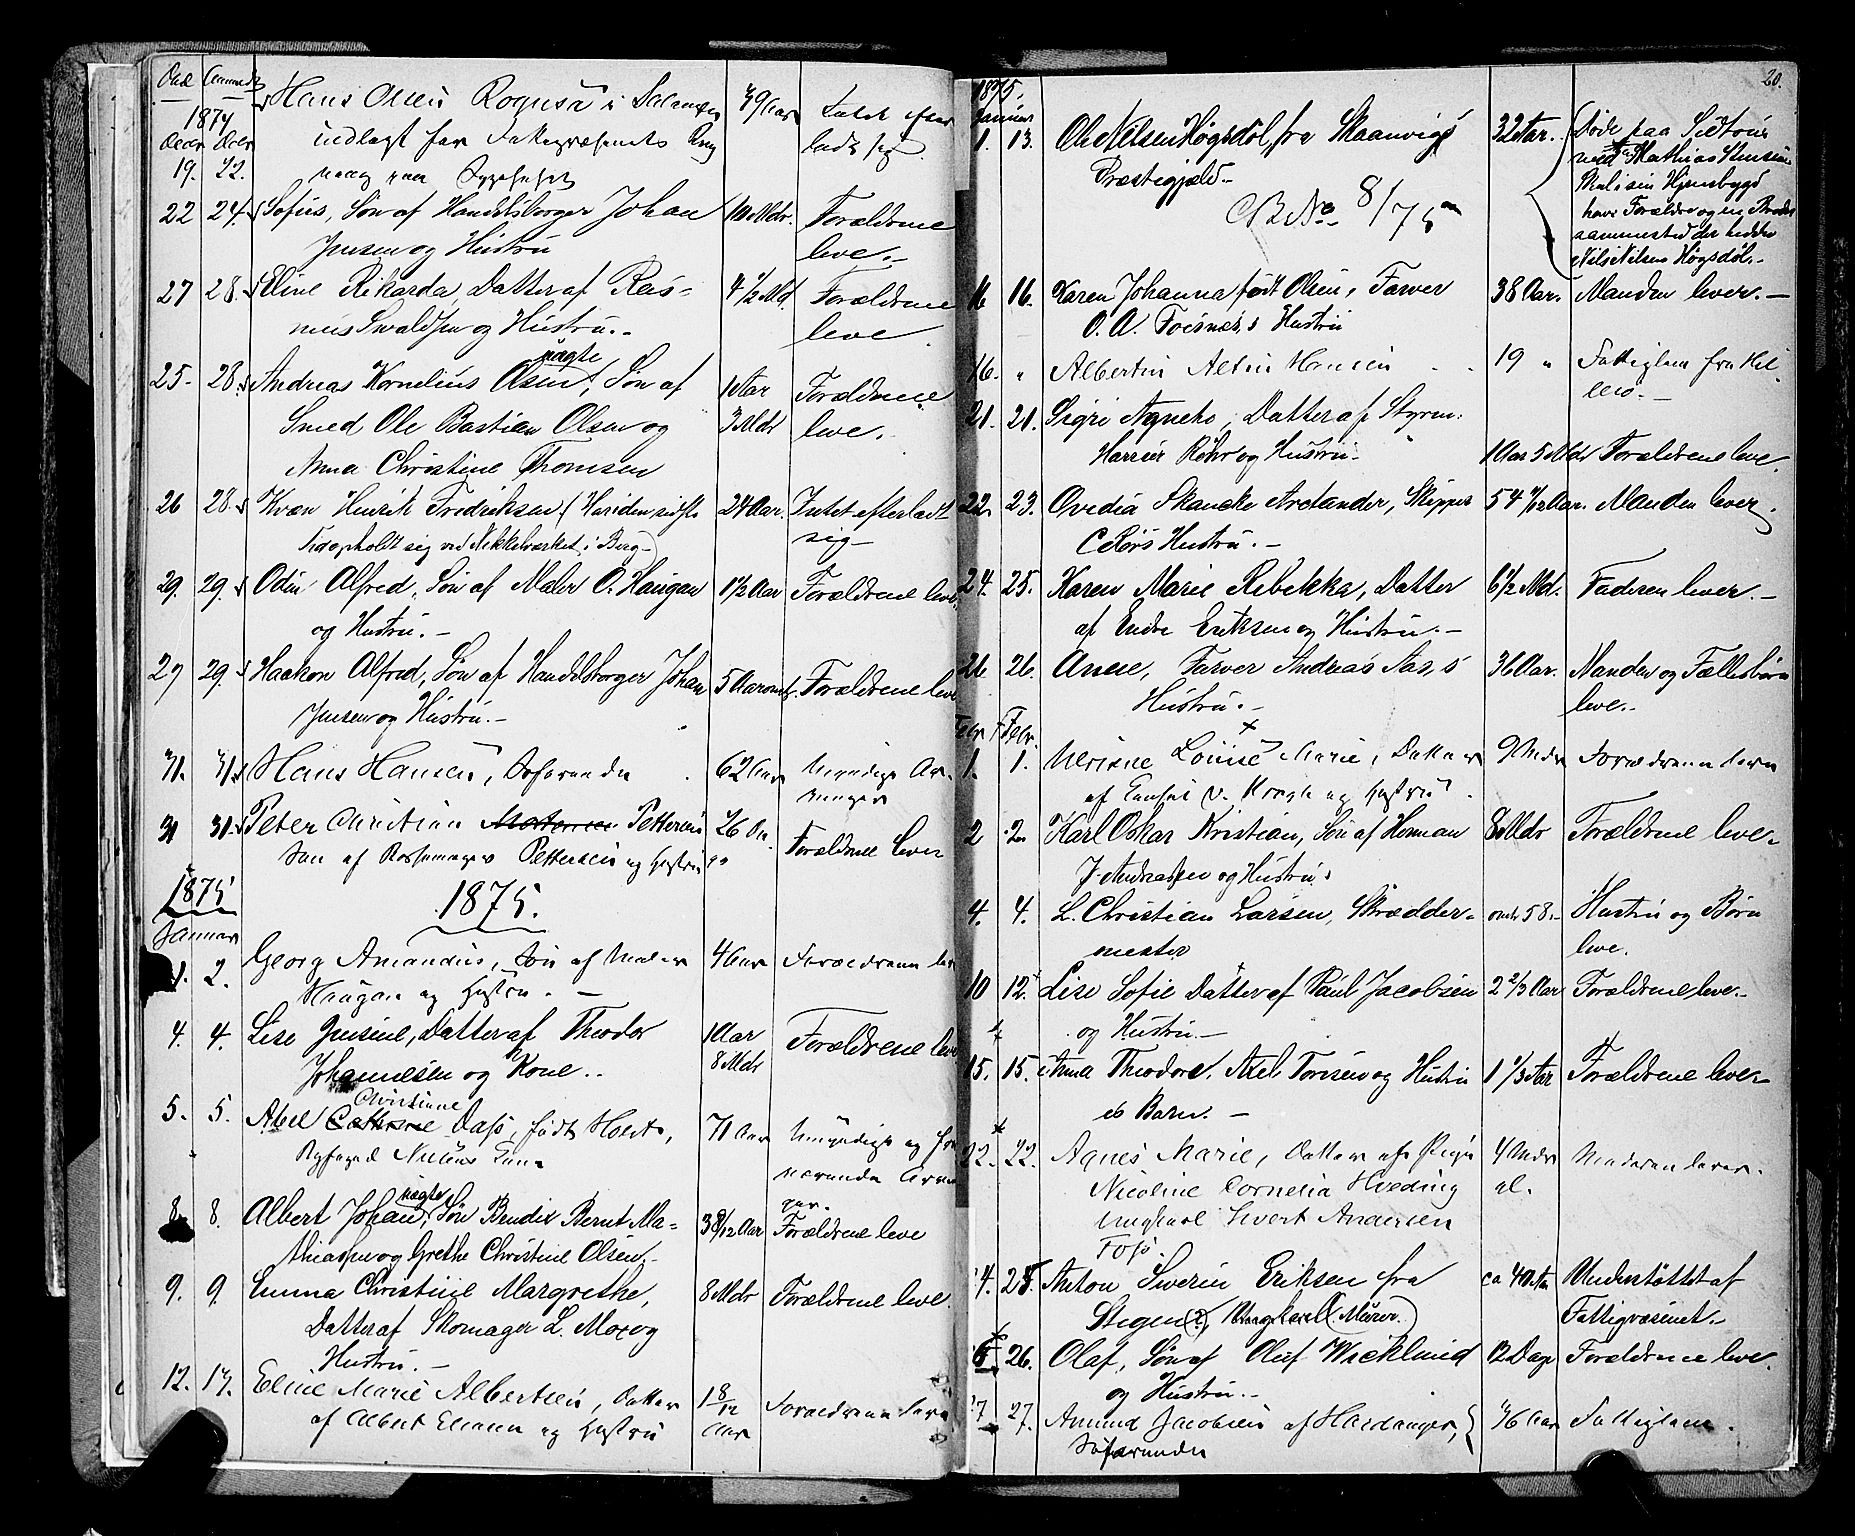 Død Anmeldt
1874
Decbr Decbr
19. 22. Hans Olsen Rognså i 39 Aar Intet efter
indlagt for Fattigvæsenets Reg ladt sig.
ning paa Sygehuset
22 24. Sofus, Søn af Handelsborger Johan 10 Mdr. Forældrene
Jensen og Hustru leve.-
27 28. Eline Rikarda, Datter af Ras- 4 1/2 Md. Forældrene
mus Svaldsen og Hustru.- leve.
25. 28. Andreas Kornelius Olsen, uægte Søn af 1 Aar Forældrene
Smed Ole Bastian Olsen og 3 Mdr leve.
Anna Christine Thomsen
26 28. Kvæn Henrik Fredriksen (Var i den sidste 24 Aar. Intet efterladt
Tid opholdt sig ved Nikkelværket i Berg-) sig-
29. 29. Odin Alfred, Søn af Maler O. Haugan 1 1/2 Aar Forældrene leve.
og Hustru.-
27 29. Haakon Alfred, Søn af Handelsborger Johan 5 Aar Forældrene leve
Jensen og Hustru.-
31. 31. Hans Hansen, Søfarende 62 Aar Umyndige Ar-
vinger
31 31. Peter Christian Pettersen 26 Forældrene lever
Søn af Pettersen og Hustru
1875 1875.
Januar
1. 2. Georg Amandus, Søn af Maler 4 Aar Forældrene lev
Haugan og Hustru. -
4. 4. Lise Jensine, Datter af Theodor 1 Aar Forældrene leve
Johannesen og Kone.. 8 Mdr
5. 5. Abel Cathrine Christianne Dass, født Holst, 71 Aar Umyndige og fra
Byfoged Enke værende Arvin
ger.
8. 8. Albert Johan, uægte Søn Bendix Bernt Ma- 3 8/12 Aar Forældrene leve
thiassen og Grethe Christine Olsen.-
9. 9. Emma Christine Margrethe, 8 Mdr Forældrene leve.
Datter af Skomager L. Moe og
Hustru.-
12. 13. Eline Marie Albertsen, Datter 1 8/12 Forældrene leve
af Albert og Hustru Aar
20.
1875.
Januar
1. 13. Ole Nilsen Høgsdøl, fra Skaanvigs 32 Aar. Døde paa
Præstegjæld.- med Mathias
CB No 8/75 Hjemsbygd
have Forældre og en Broder
sammested der hedder
Nils Nilsen Høgsdøl.-
16 16. Karen Johanna født Olsen, Farver 38 Aar. Manden lever.-
O. A. Foesnes,s Hustru
16. " Albertin Hansen 19 " Fattiglem fra Hil-
lesø.-
21. 21. Sigri Agnete, Datter af Styrm.
Røhr og Hustru- 1 Aar 5 Mdr Forældrene leve.
22. 23. Ovedia Skancke Arctander, Skipper 54 Aar. Manden lever.
Hustru.-
24. 25. Karen Marie Rebekka, Datter 6 1/2 Md. Faderen lever.-
af Endre Eriksen og Hustru.-
26 26. Anne, Farver Andreas Aas,s 36 Aar. Manden og Fællesbørn
Hustru.- leve.-
Febr Febr.
1. 1. Louise Marie, Datter 9 Mdr Forældrene leve
af v. Krogh og Hustru.
2 2. Karl Oskar Kristian, Søn af Herman 8 Mdr Forældrene leve.
J. Andreassen og Hustru.
4. 4. L. Christian Larsen, Skrædder- 58.- Hustru og Børn
mester leve.
10 12. Lise Sofie Datter af Paul Jacobsen 2 2/3 Aar Forældrene leve.-
og Hustru.-
15. 15. Anna Theodora. Axel Toresen og Hustru 1 1/3 Aar Forældrene leve.-
s Barn.-
22. 22. Agnes Marie, Datter af Pige 4 Mdr Moderen lever.
Nicoline Cornelia Hveding gl.
Ungkarl Sivert Andersen
Foss.
24. 25. Anton Severin Eriksen fra ca 40 Aar Understøttet af
Stegen (?), Ungkarl (Murer.) Fattigvæsenet.-
26. Olaf, Søn af Oluf Wicklund 12 Dage Forældrene leve.
og Hustru.-
27 27. Amund Jacobsen af Hardanger, 36 Aar Fattiglem.
Søfarende